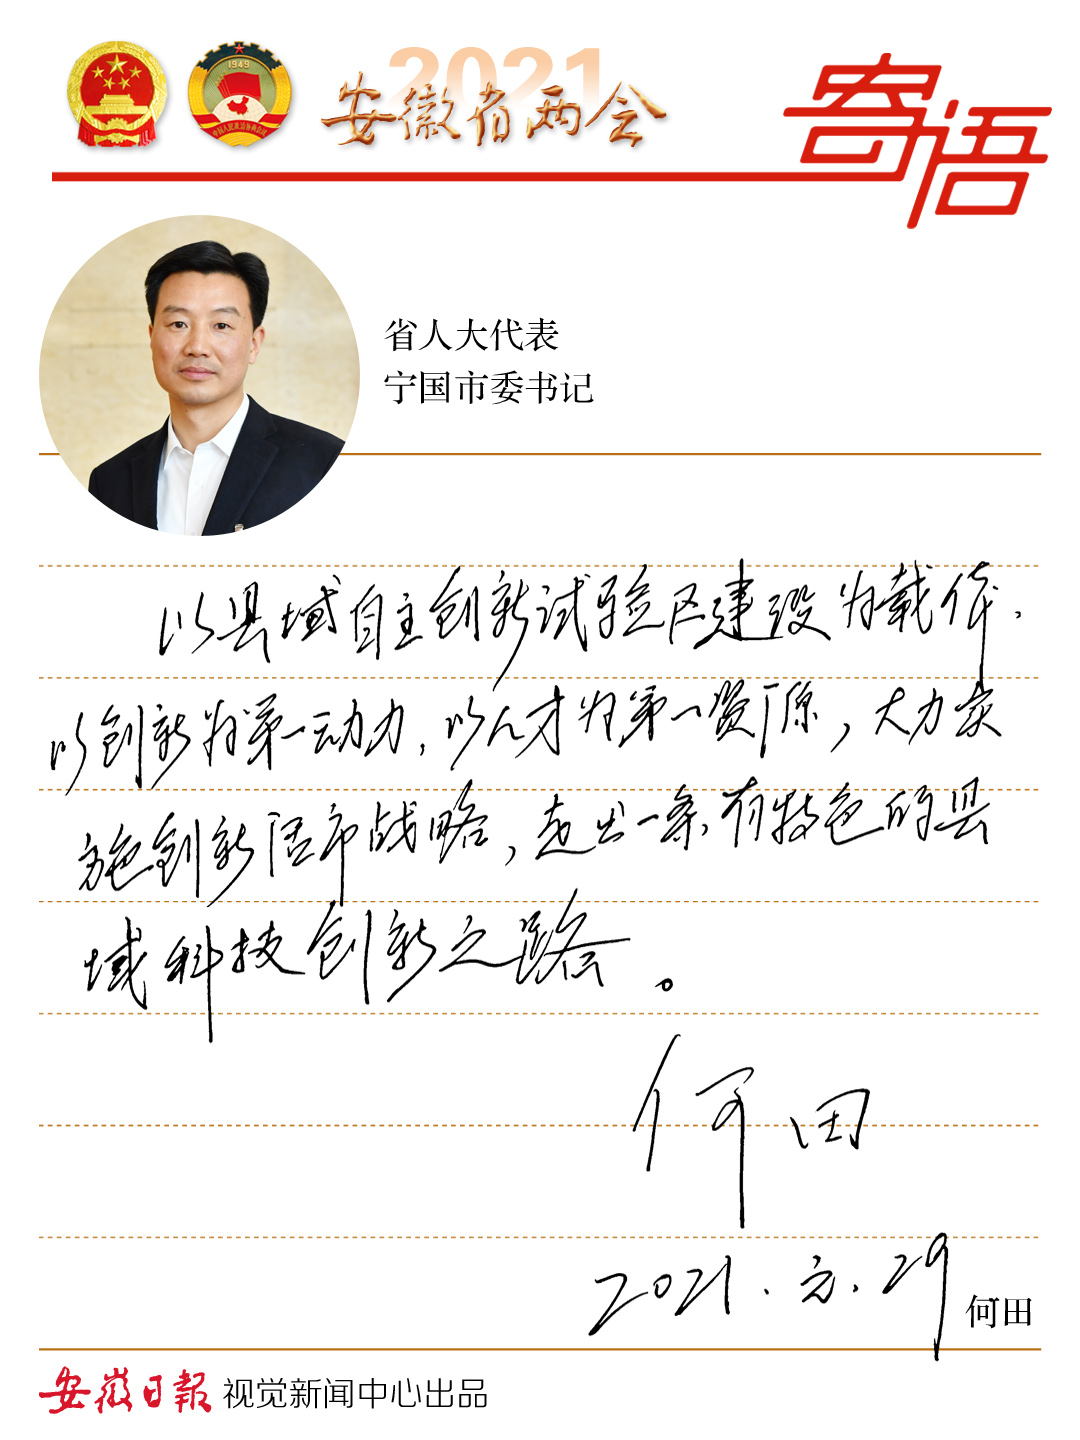 2021
安徽省两会
寄语
1949
中国人民政治协商会议
省人大代表
宁国市委书记
以县域自主创新试验区建设为载体，
以创新为第一动力，以人才为第一资源，大力实
施创新活市战略，走出一条有特色的县
域科技创新之路。
何田
2021.元.29
何田
安徽日報 视觉新闻中心出品